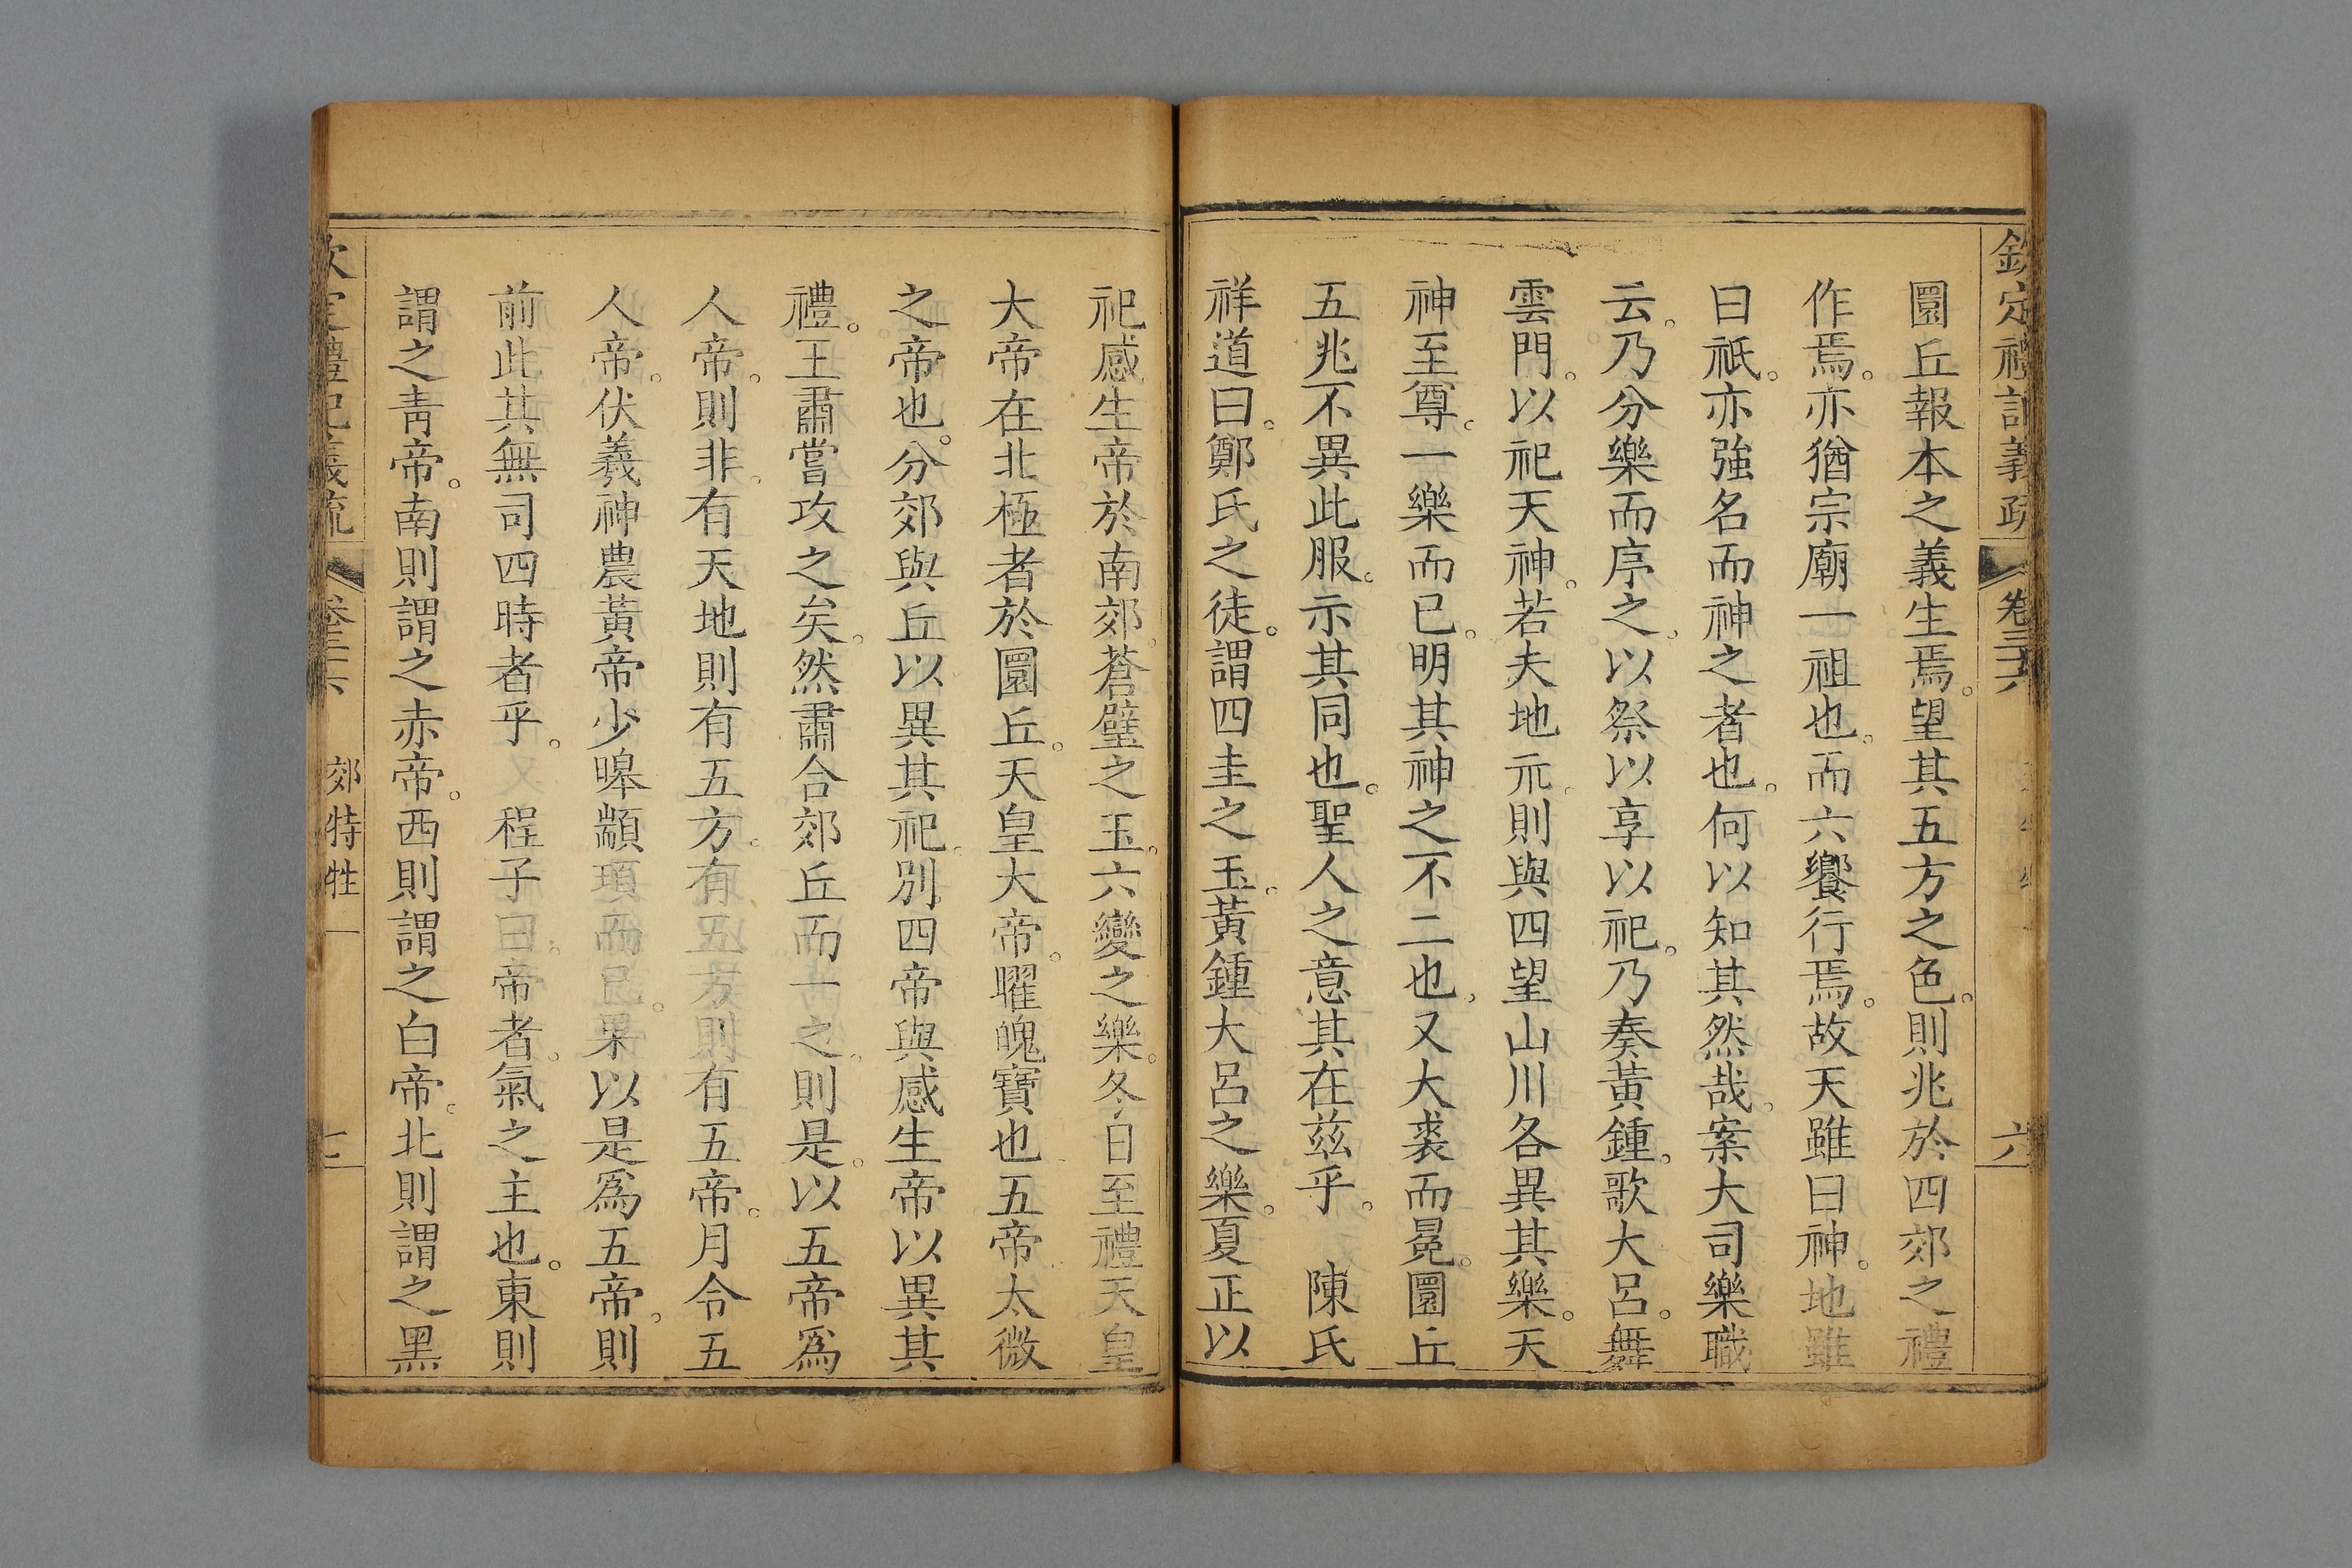 欽定禮記義疏 卷三十六 六
圜丘報本之義生焉。望其五方之色。則兆於四郊之禮
作焉。亦猶宗廟一祖也。而六饗行焉。故天雖曰神。地雖
曰祇。亦強名而神之者也。何以知其然哉。案大司樂職
云。乃分樂而序之。以祭以享以祀。乃奏黃鍾。歌大呂。舞
雲門。以祀天神。若夫地示。則與四望山川各異其樂。天
神至尊。一樂而已。明其神之不二也。又大裘而冕。圜丘
五兆不異此服。示其同也。聖人之意其在茲乎。　陳氏
祥道曰。鄭氏之徒。謂四圭之玉。黃鍾大呂之樂。夏正以
祀感生帝於南郊。蒼璧之玉。六變之樂。冬日至禮天皇
大帝在北極者於圜丘。天皇大帝。曜魄寶也。五帝太微
之帝也。分郊與丘以異其祀。別四帝與感生帝以異其
禮。王肅嘗攻之矣。然肅合郊丘而一之。則是。以五帝爲
人帝。則非。有天地則有五方。有五方則有五帝。月令五
人帝。伏羲神農黃帝少皞顓頊而已。果以是爲五帝。則
前此其無司四時者乎。又　程子曰。帝者。氣之主也。東則
謂之青帝。南則謂之赤帝。西則謂之白帝。北則謂之黑
欽定禮記義疏 卷三十六 郊特牲 七